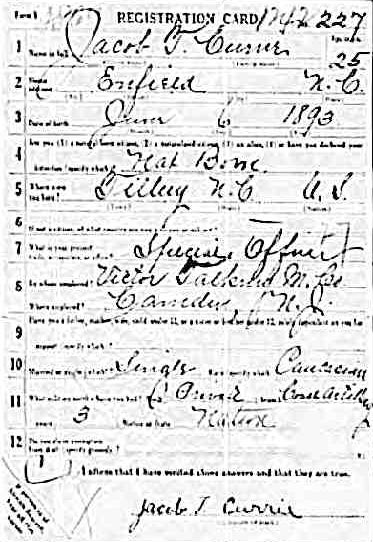 Form 1 REGISTRATION CARD 227
1 Jacob T. Currie
Name in full Age in yrs. 25
2 Home address Enfield N.C.
3 Date of birth June 6 1893
4 Are you (1) a natural born citizen, (2) a naturalized citizen, (3) an alien, (4) or have you declared your
intention (specify which)? Nat Born
5 Where were you born? Tillery N.C. U.S.
6
7 What is your present Special Officer
8 By whom employed? Victor Talking M. Co
Where employed? Camden, N.J.
9 Have you a father, mother, wife, child under 12, or a sister or brother under 12, solely dependent on you for
support (specify which)?
10 Married or single (which)? Single Race (specify which)? Caucasian
11 What military service have you had? Rank Private branch Coast Artillery
years 3 Nation or State Nation
12 Do you claim exemption
from draft (specify grounds)?
I affirm that I have verified above answers and that they are true.
Jacob T. Currie